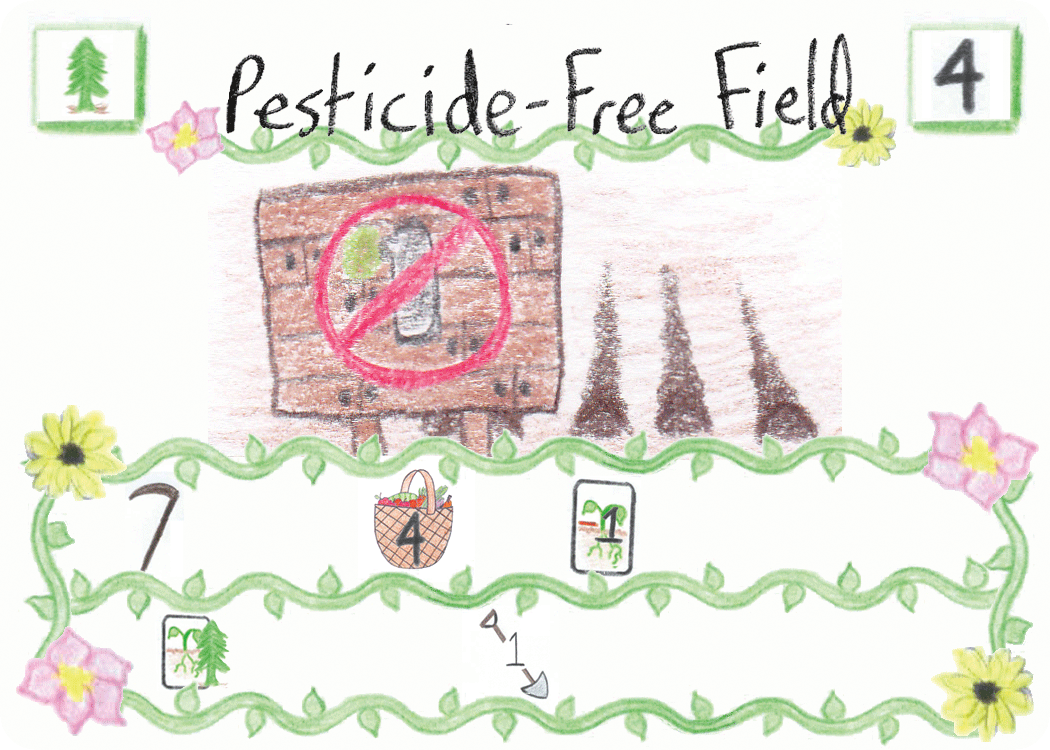 Pesticide-Free Field
4
4
-1
1